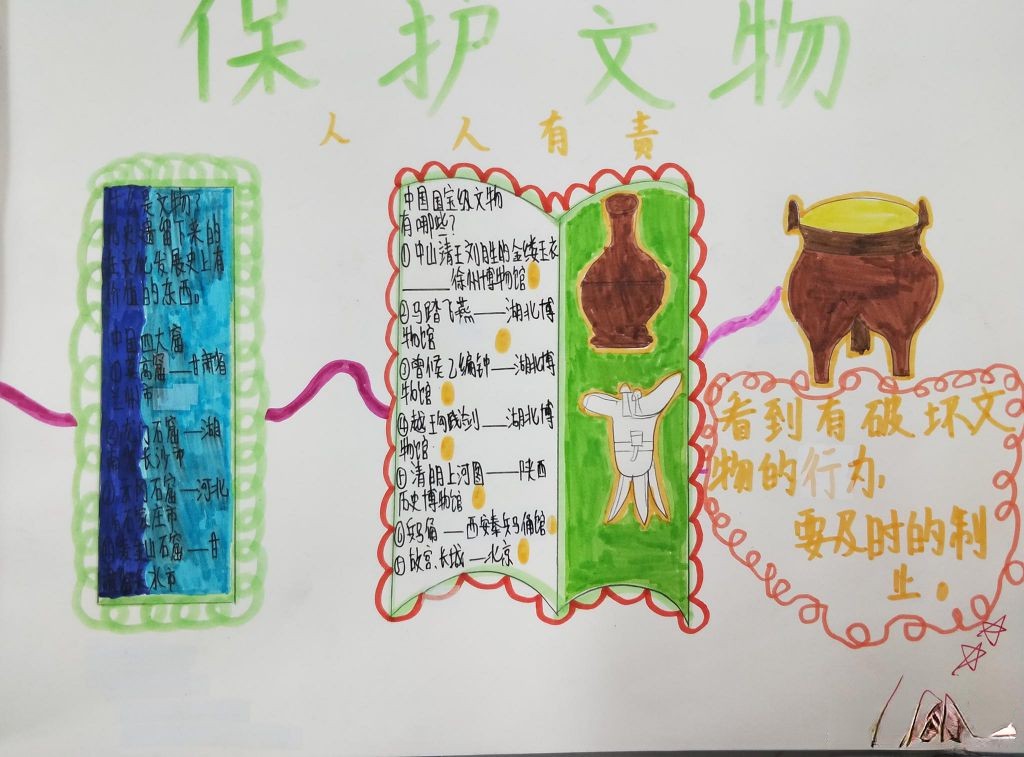 保护文物
人人有责
什么是文物?
历史遗留下来的
在文化发展史上有
价值的东西。
中国四大窟
①莫高窟—甘肃省
兰州市
石窟—湖
长沙市
石窟—河北
石家庄市
山石窟—甘
水市
中国国宝级文物
有哪些?
①中山清王刘胜的金缕玉衣
——徐州博物馆
②马踏飞燕——湖北博
物馆
③曾候乙编钟——湖北博
物馆
④越王勾践剑——湖北博
物馆
⑤清明上河图——陕西
历史博物馆
⑥兵马俑—西安秦兵马俑馆
⑦故宫、长城—北京
看到有破坏文
物的行为
要及时的制
止。